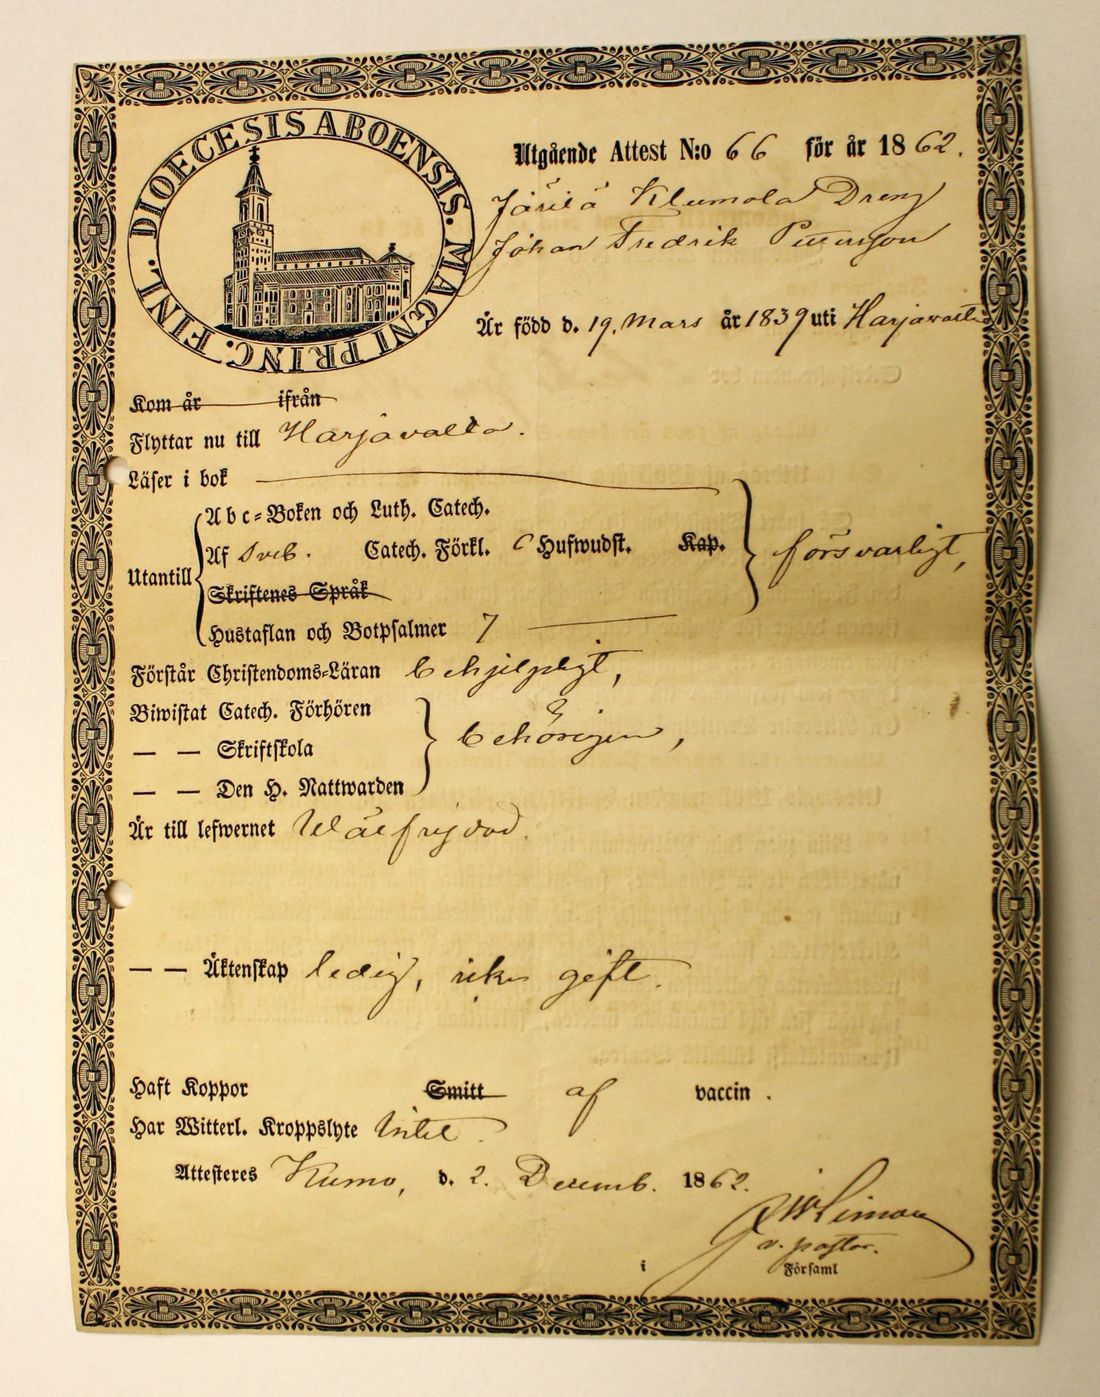 DIOECESIS ABOENSIS. MAGNI PRINC. FINL.
Utgående Attest N:o 66 för år 1862.
Järilä Klemola Dreng
Johan Fredrik Petersson
Är född d. 19. Mars år 1839 uti Harjavalta
Kom år ifrån
Flyttar nu till Harjavalta.
Läser i bok
Abc-Boken och Luth. Catech.
Af Sveb. Catech. Förkl. Hufwudst. Kap.
försvarligt,
Utantill
Skriftenes Språk
Hustaflan och Botpsalmer 7
Förstår Christendoms-Läran behjelpligt,
Biwistat Catech. Förhören
— — Skriftskola
behörigen,
— — Den H. Nattwarden
Är till lefwernet Wälfrejdad.
— — Äktenskap ledig, icke gift.
Haft Koppor Smitt af vaccin.
Har Witterl. Kroppslyte Intet.
Attesteres Kumo, d. 2. Decemb. 1862.
v. pastor.
i Församl